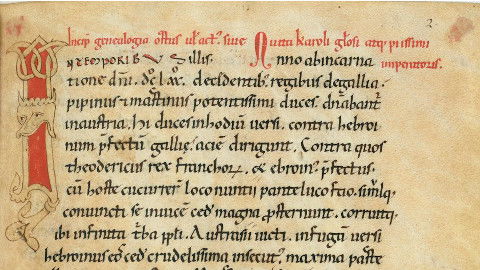 Incip̄ genealogia ortus ul̄ act᷒ siue Uita karoli gl̄osi atq; piissimi
TEMPORIBUS illis. Anno abincarna imperatoris.
tione dn̄i. dc̄ lxx. decidentib; regibus degallia.
pipinus & martinus potentissimi duces dn̄abant̄
inaustria. hi duces inhodiū uersi. contra hebroi
num p̄fectū gallię. aciē dirigunt. Contra quos
theodericus rex franchoꝝ. & ebroin᷒ p̄fectus.
cū hoste cucurrer̄ loco nuncupante lucofao. simulq;
conuincti se inuicē cede magna p̄sternunt. corruitq;
ibi infinita t̄ba ppl̄i. Austrasii uicti. infugā uersi
hebroinus eos̄ cede crudelissima insecut᷒. maxima parte